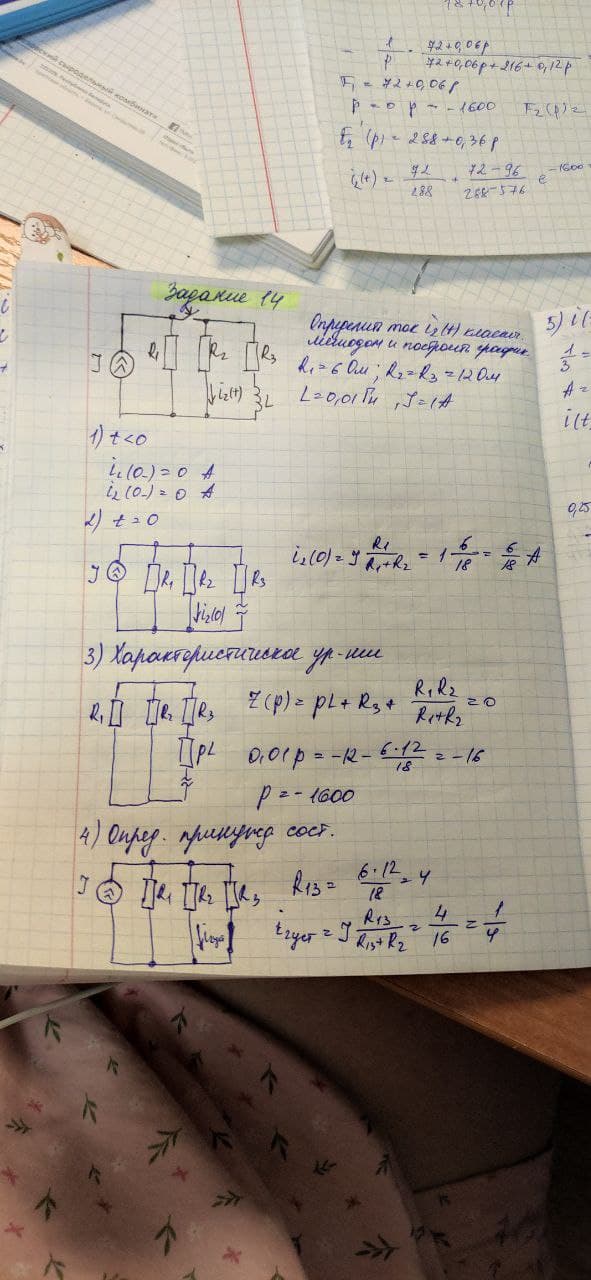 18+0,01p
- 1/p · 72+0,06p / 72+0,06p+216+0,12p
F₁ = 72+0,06p
p = 0 p = -1600 F₂(p) =
F₂'(p) = 288+0,36p
i₂(t) = 72/288 + 72-96/288-576 e^-1600
сыродельный комбинат»
Задание 14
Определить ток i₂(t) классич.
методом и построить график
R₁=6 Ом; R₂=R₃=12 Ом
L=0,01 Гн, J=1А
J R₁ R₂ R₃ i₂(t) L
1) t<0
i₂(0-) = 0 А
2) t=0
J R₁ R₂ R₃ i₂(0)
i₂(0) = J R₁/R₁+R₂ = 1 6/18 = 6/18 А
3) Характеристическое ур-ние
R₁ R₂ R₃ pL
Z(p) = pL + R₃ + R₁R₂/R₁+R₂ = 0
0,01p = -12 - 6·12/18 = -16
p = -1600
4) Опред. принужд сост.
J R₁ R₂ R₃ i₂уст
R₁₃ = 6·12/18 = 4
i₂уст = J R₁₃/R₁₃+R₂ = 4/16 = 1/4
5) i(
1/3 =
A =
i(t
0,25